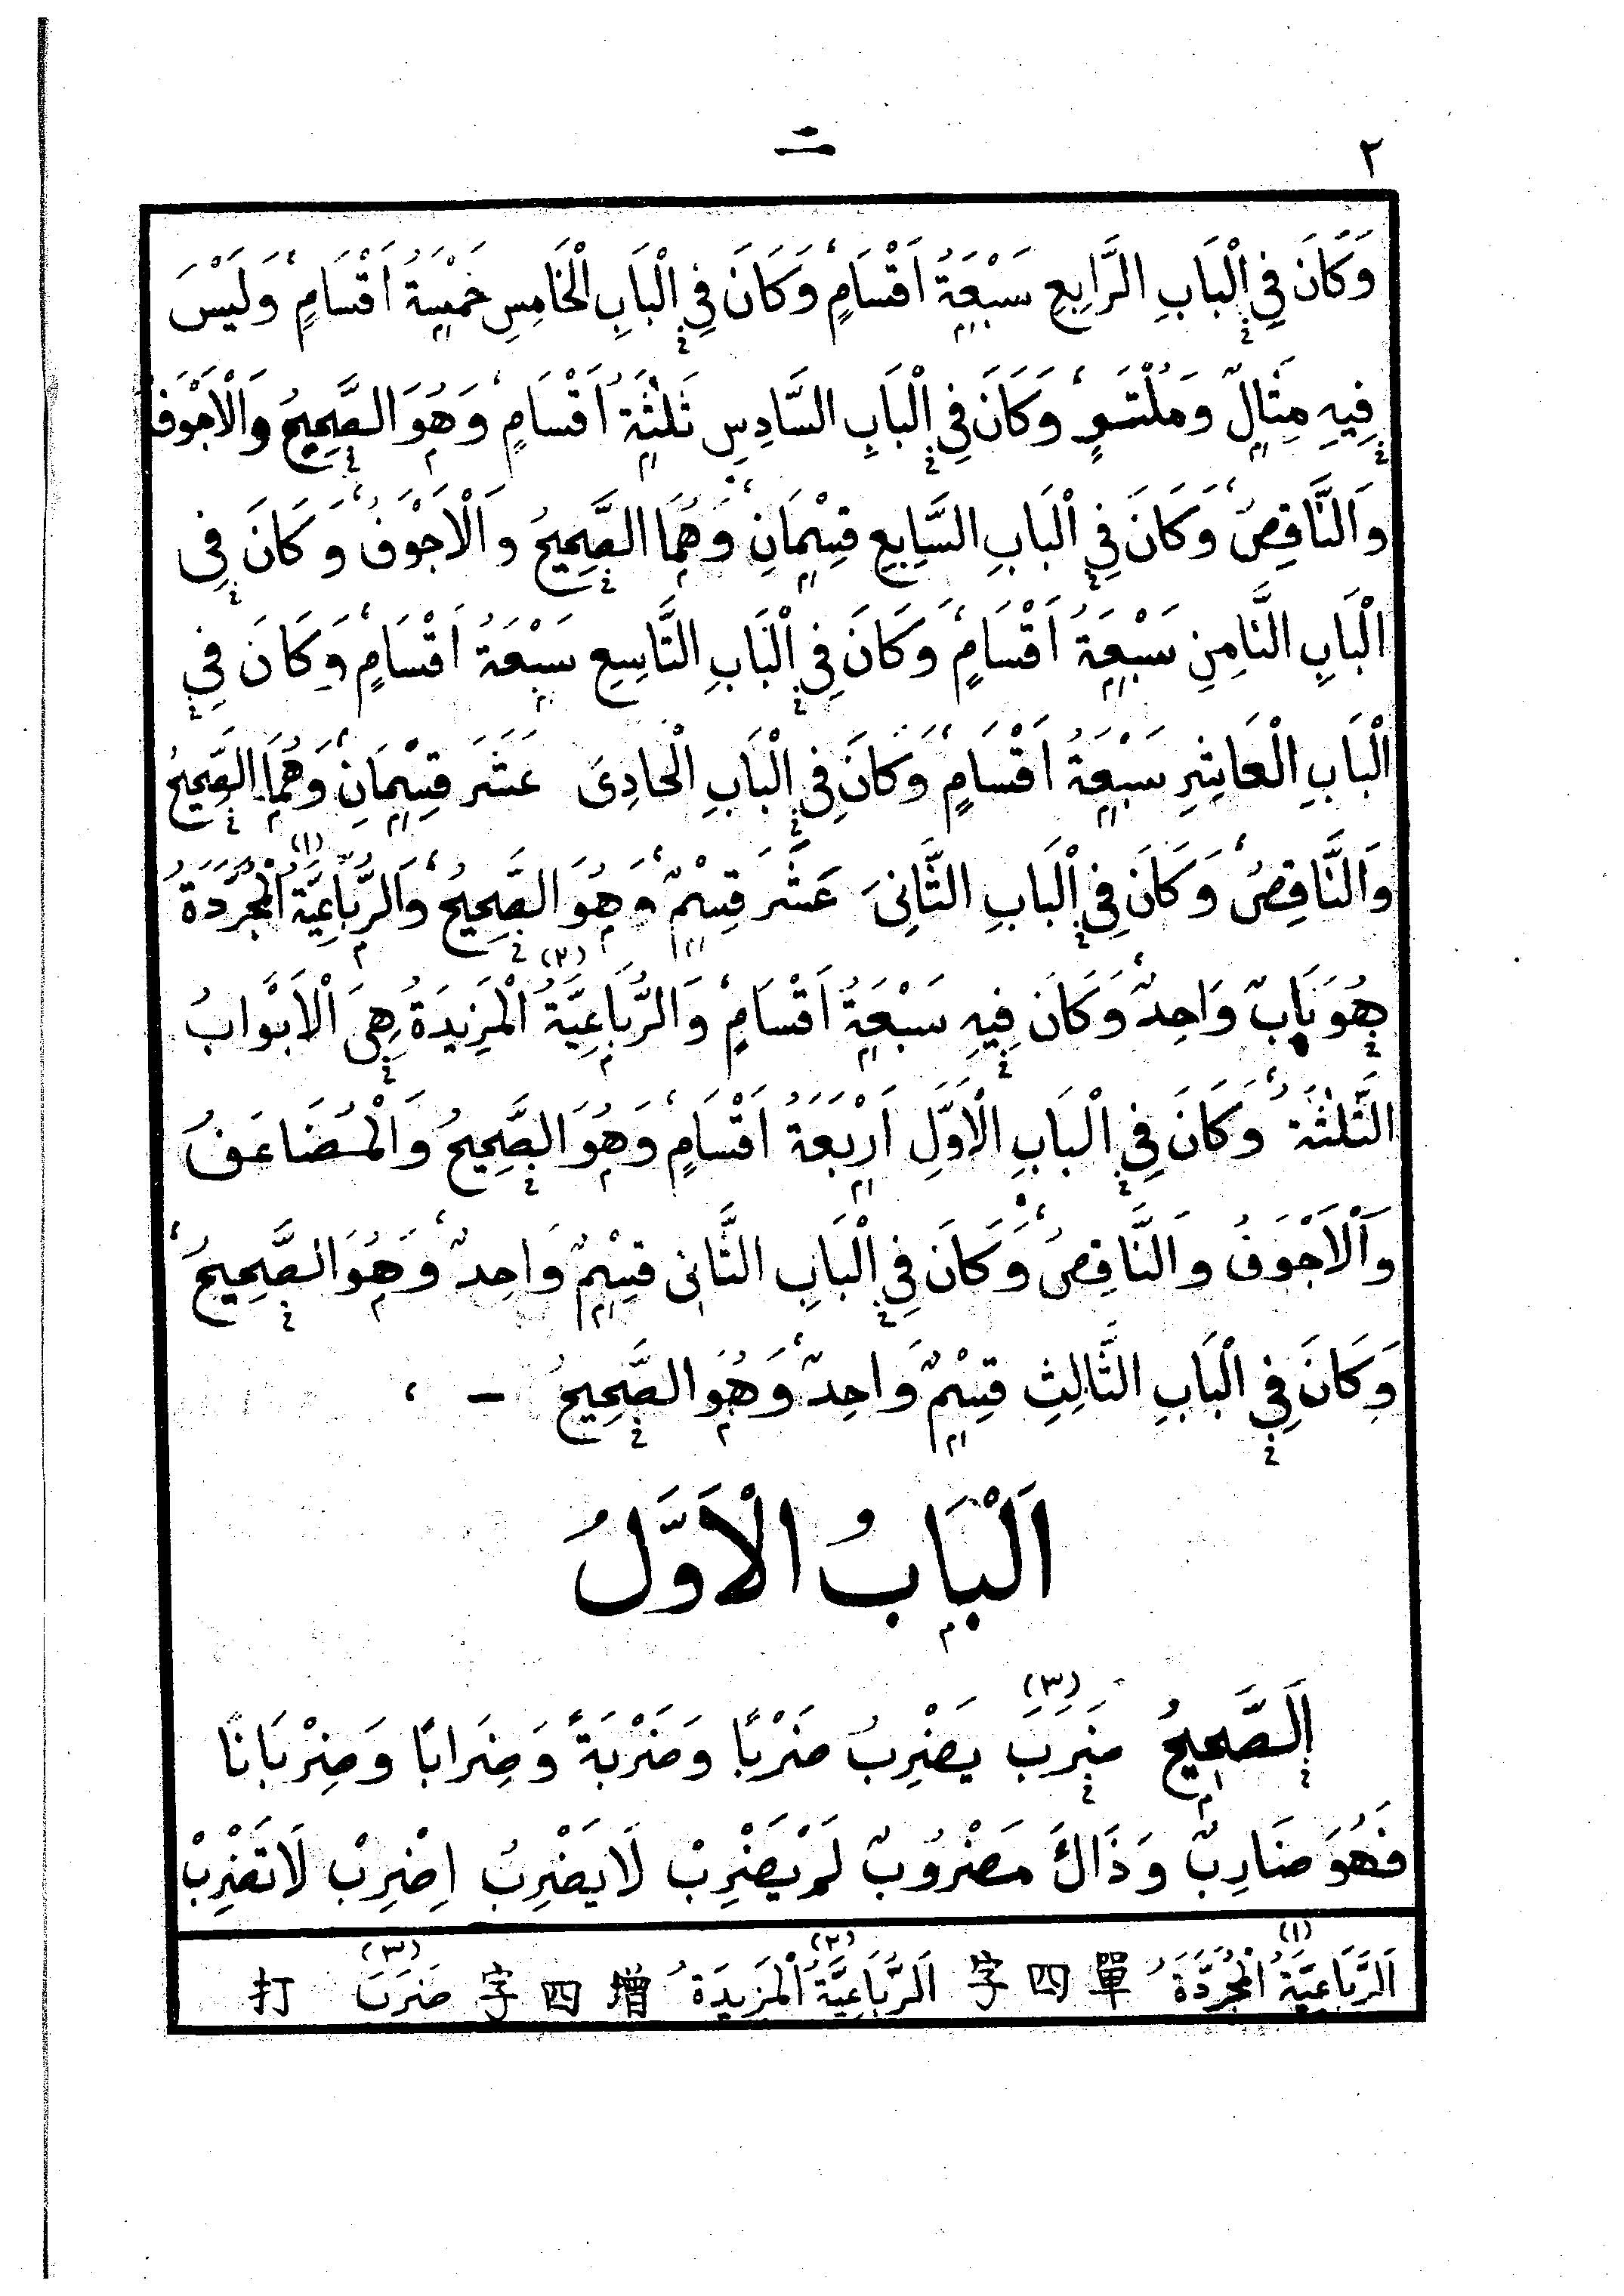 ٢ 二
وَكَانَ فِي الْبَابِ الرَّابِعِ سَبْعَةُ اَقْسَامٍ، وَكَانَ فِي الْبَابِ الْخَامِسِ خَمْسَةُ اَقْسَامٍ، وَلَيْسَ
فِيهِ مِثَالٌ وَمُلْتَوٍ، وَكَانَ فِي الْبَابِ السَّادِسِ ثَلٰثَةُ اَقْسَامٍ، وَهُوَ الصَّحِيحُ وَالْاَجْوَفُ
وَالنَّاقِصُ، وَكَانَ فِي الْبَابِ السَّابِعِ قِسْمَانِ، وَهُمَا الصَّحِيحُ وَالْاَجْوَفُ، وَكَانَ فِي
الْبَابِ الثَّامِنِ سَبْعَةُ اَقْسَامٍ، وَكَانَ فِي الْبَابِ التَّاسِعِ سَبْعَةُ اَقْسَامٍ، وَكَانَ فِي
الْبَابِ الْعَاشِرِ سَبْعَةُ اَقْسَامٍ، وَكَانَ فِي الْبَابِ الْحَادِيَ عَشَرَ قِسْمَانِ، وَهُمَا الصَّحِيحُ
وَالنَّاقِصُ، وَكَانَ فِي الْبَابِ الثَّانِيَ عَشَرَ قِسْمٌ، وَهُوَ الصَّحِيحُ، وَالرُّبَاعِيَّةُ (١) الْمُجَرَّدَةُ
هُوَ بَابٌ وَاحِدٌ، وَكَانَ فِيهِ سَبْعَةُ اَقْسَامٍ، وَالرُّبَاعِيَّةُ (٢) الْمَزِيدَةُ هِيَ الْاَبْوَابُ
الثَّلٰثَةُ، وَكَانَ فِي الْبَابِ الْاَوَّلِ اَرْبَعَةُ اَقْسَامٍ، وَهُوَ الصَّحِيحُ وَالْمُضَاعَفُ
وَالْاَجْوَفُ وَالنَّاقِصُ، وَكَانَ فِي الْبَابِ الثَّانِي قِسْمٌ وَاحِدٌ، وَهُوَ الصَّحِيحُ،
وَكَانَ فِي الْبَابِ الثَّالِثِ قِسْمٌ وَاحِدٌ، وَهُوَ الصَّحِيحُ – ،
اَلْبَابُ الْاَوَّلُ
اَلصَّحِيحُ ضَرَبَ (٣) يَضْرِبُ ضَرْبًا وَضَرْبَةً وَضِرَابًا وَضِرْبَانًا
فَهُوَ ضَارِبٌ وَذَاكَ مَضْرُوبٌ لَمْ يَضْرِبْ لَا يَضْرِبُ اِضْرِبْ لَا تَضْرِبْ
(١) اَلرُّبَاعِيَّةُ الْمُجَرَّدَةُ 單四字 (٢) اَلرُّبَاعِيَّةُ الْمَزِيدَةُ 增四字 (٣) ضَرَبَ 打